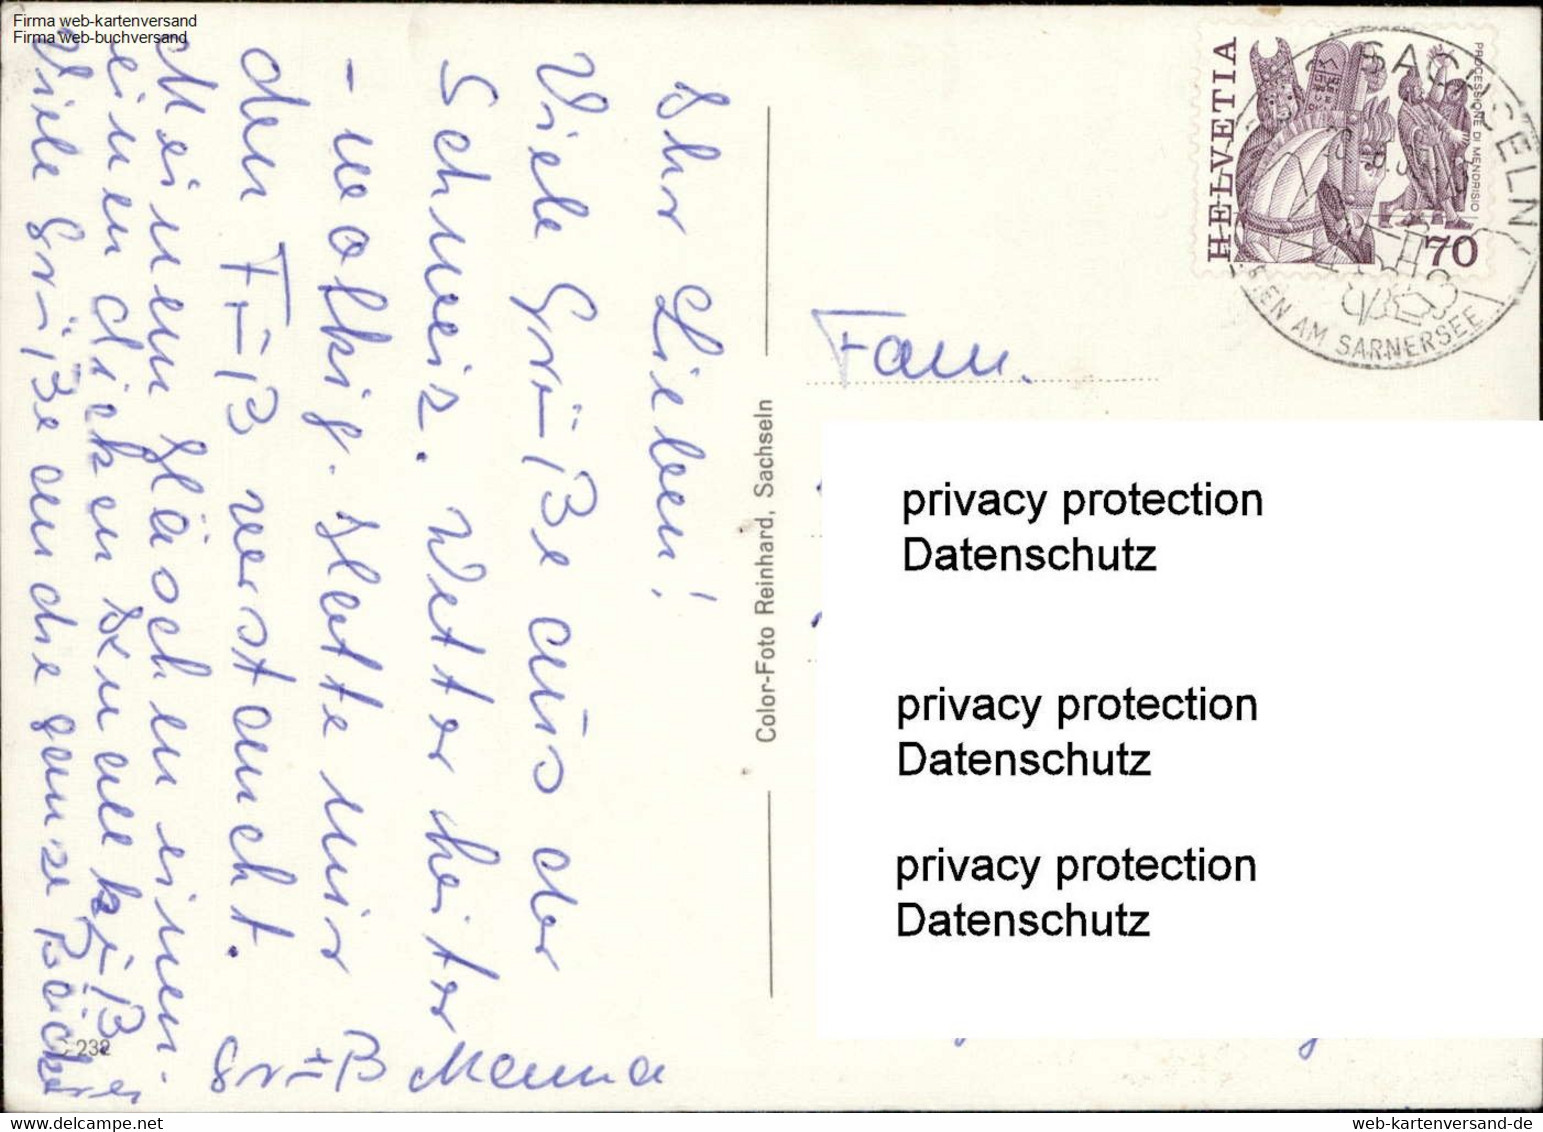 Firma web-kartenversand
Firma web-buchversand
Ihr Lieben!
Viele Grüße aus der
Schweiz. Wetter heiter
- wolkig. Hatte mir
den Fuß verstaucht.
Meinem Häschen einen
einen dicken Knutschkuß
Viele Grüße an die ganze Bäckerei
Gruß Mama
232
Color-Foto Reinhard, Sachseln
HELVETIA
PROCESSIONE DI MENDRISIO
70
SACHSELN
FERIEN AM SARNERSEE
Fam.
privacy protection
Datenschutz
privacy protection
Datenschutz
privacy protection
Datenschutz
www.web-kartenversand.com
web-kartenversand-de